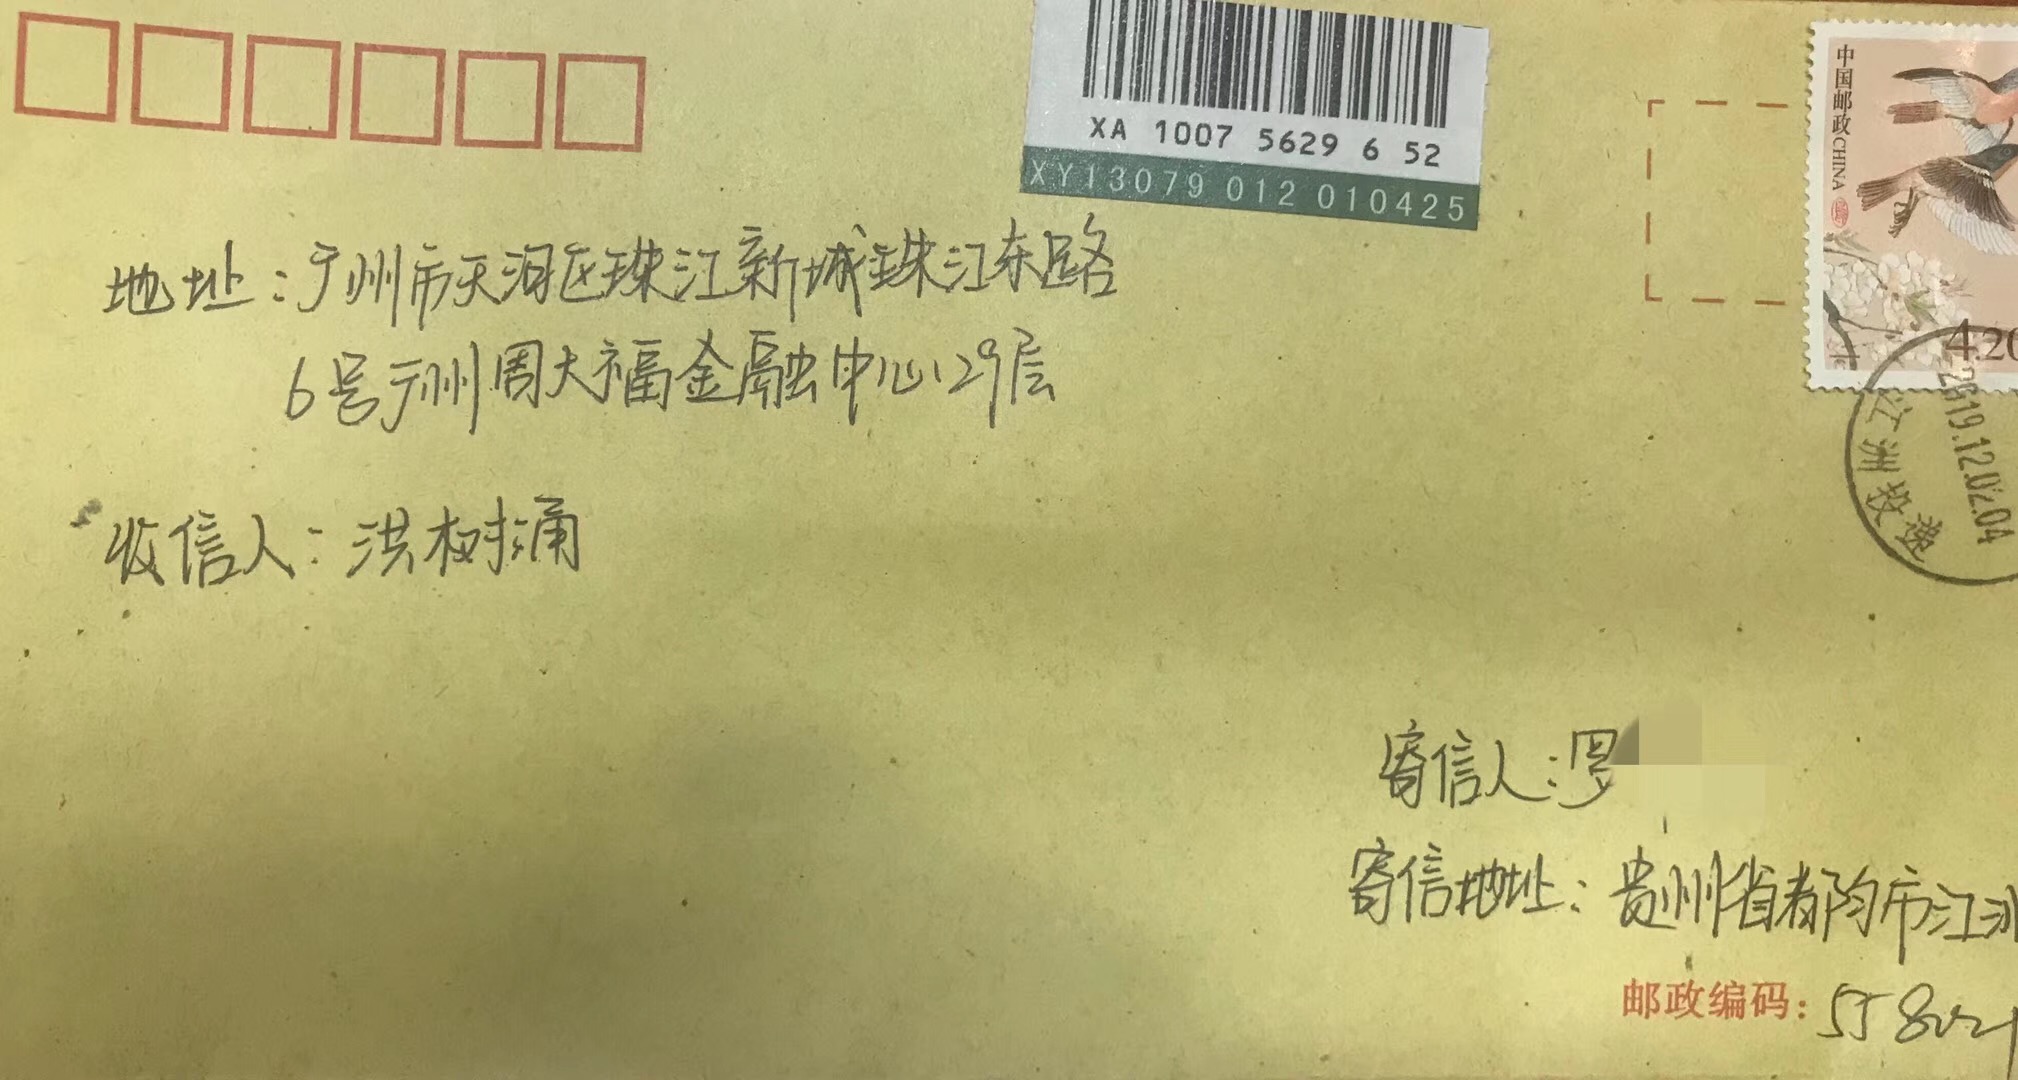 XA 1007 5629 6 52
XY13079 012 010425
中国邮政 CHINA
4.20
2019.12.02.04
江洲投递
地址:广州市天河区珠江新城珠江东路
6号广州周大福金融中心29层
收信人:洪树涌
寄信人:罗
寄信地址:贵州省都匀市江洲
邮政编码: